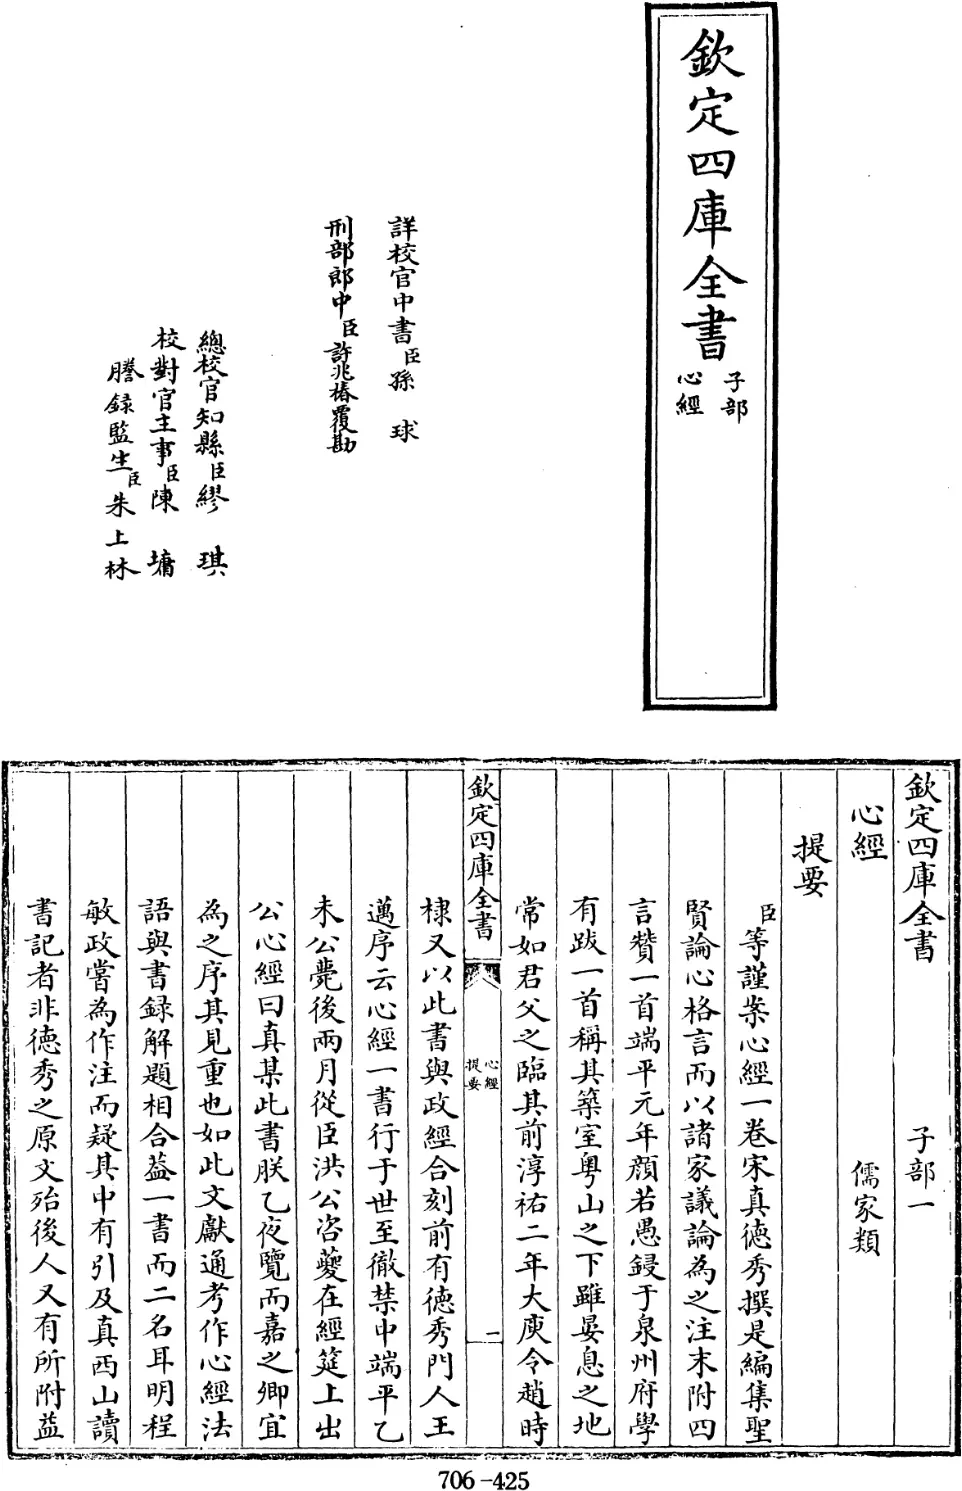 欽定四庫全書
子部
心經
詳校官中書臣孫球
刑部郎中臣許兆椿覆勘
總校官知縣臣繆琪
校對官主事臣陳墉
謄錄監生臣朱上林
欽定四庫全書 子部一
心經 儒家類
提要
臣等謹案心經一卷宋真德秀撰是編集聖
賢論心格言而以諸家議論為之注末附四
言贊一首端平元年顔若愚鋟于泉州府學
有跋一首稱其築室粵山之下雖晏息之地
常如君父之臨其前淳祐二年大庾令趙時
欽定四庫全書
心經
提要
一
棣又以此書與政經合刻前有德秀門人王
邁序云心經一書行于世至徹禁中端平乙
未公薨後兩月從臣洪公咨夔在經筵上出
公心經曰真某此書朕乙夜覽而嘉之卿宜
為之序其見重也如此文獻通考作心經法
語與書録解題相合葢一書而二名耳明程
敏政嘗為作注而疑其中有引及真西山讀
書記者非徳秀之原文殆後人又有所附益
706-425